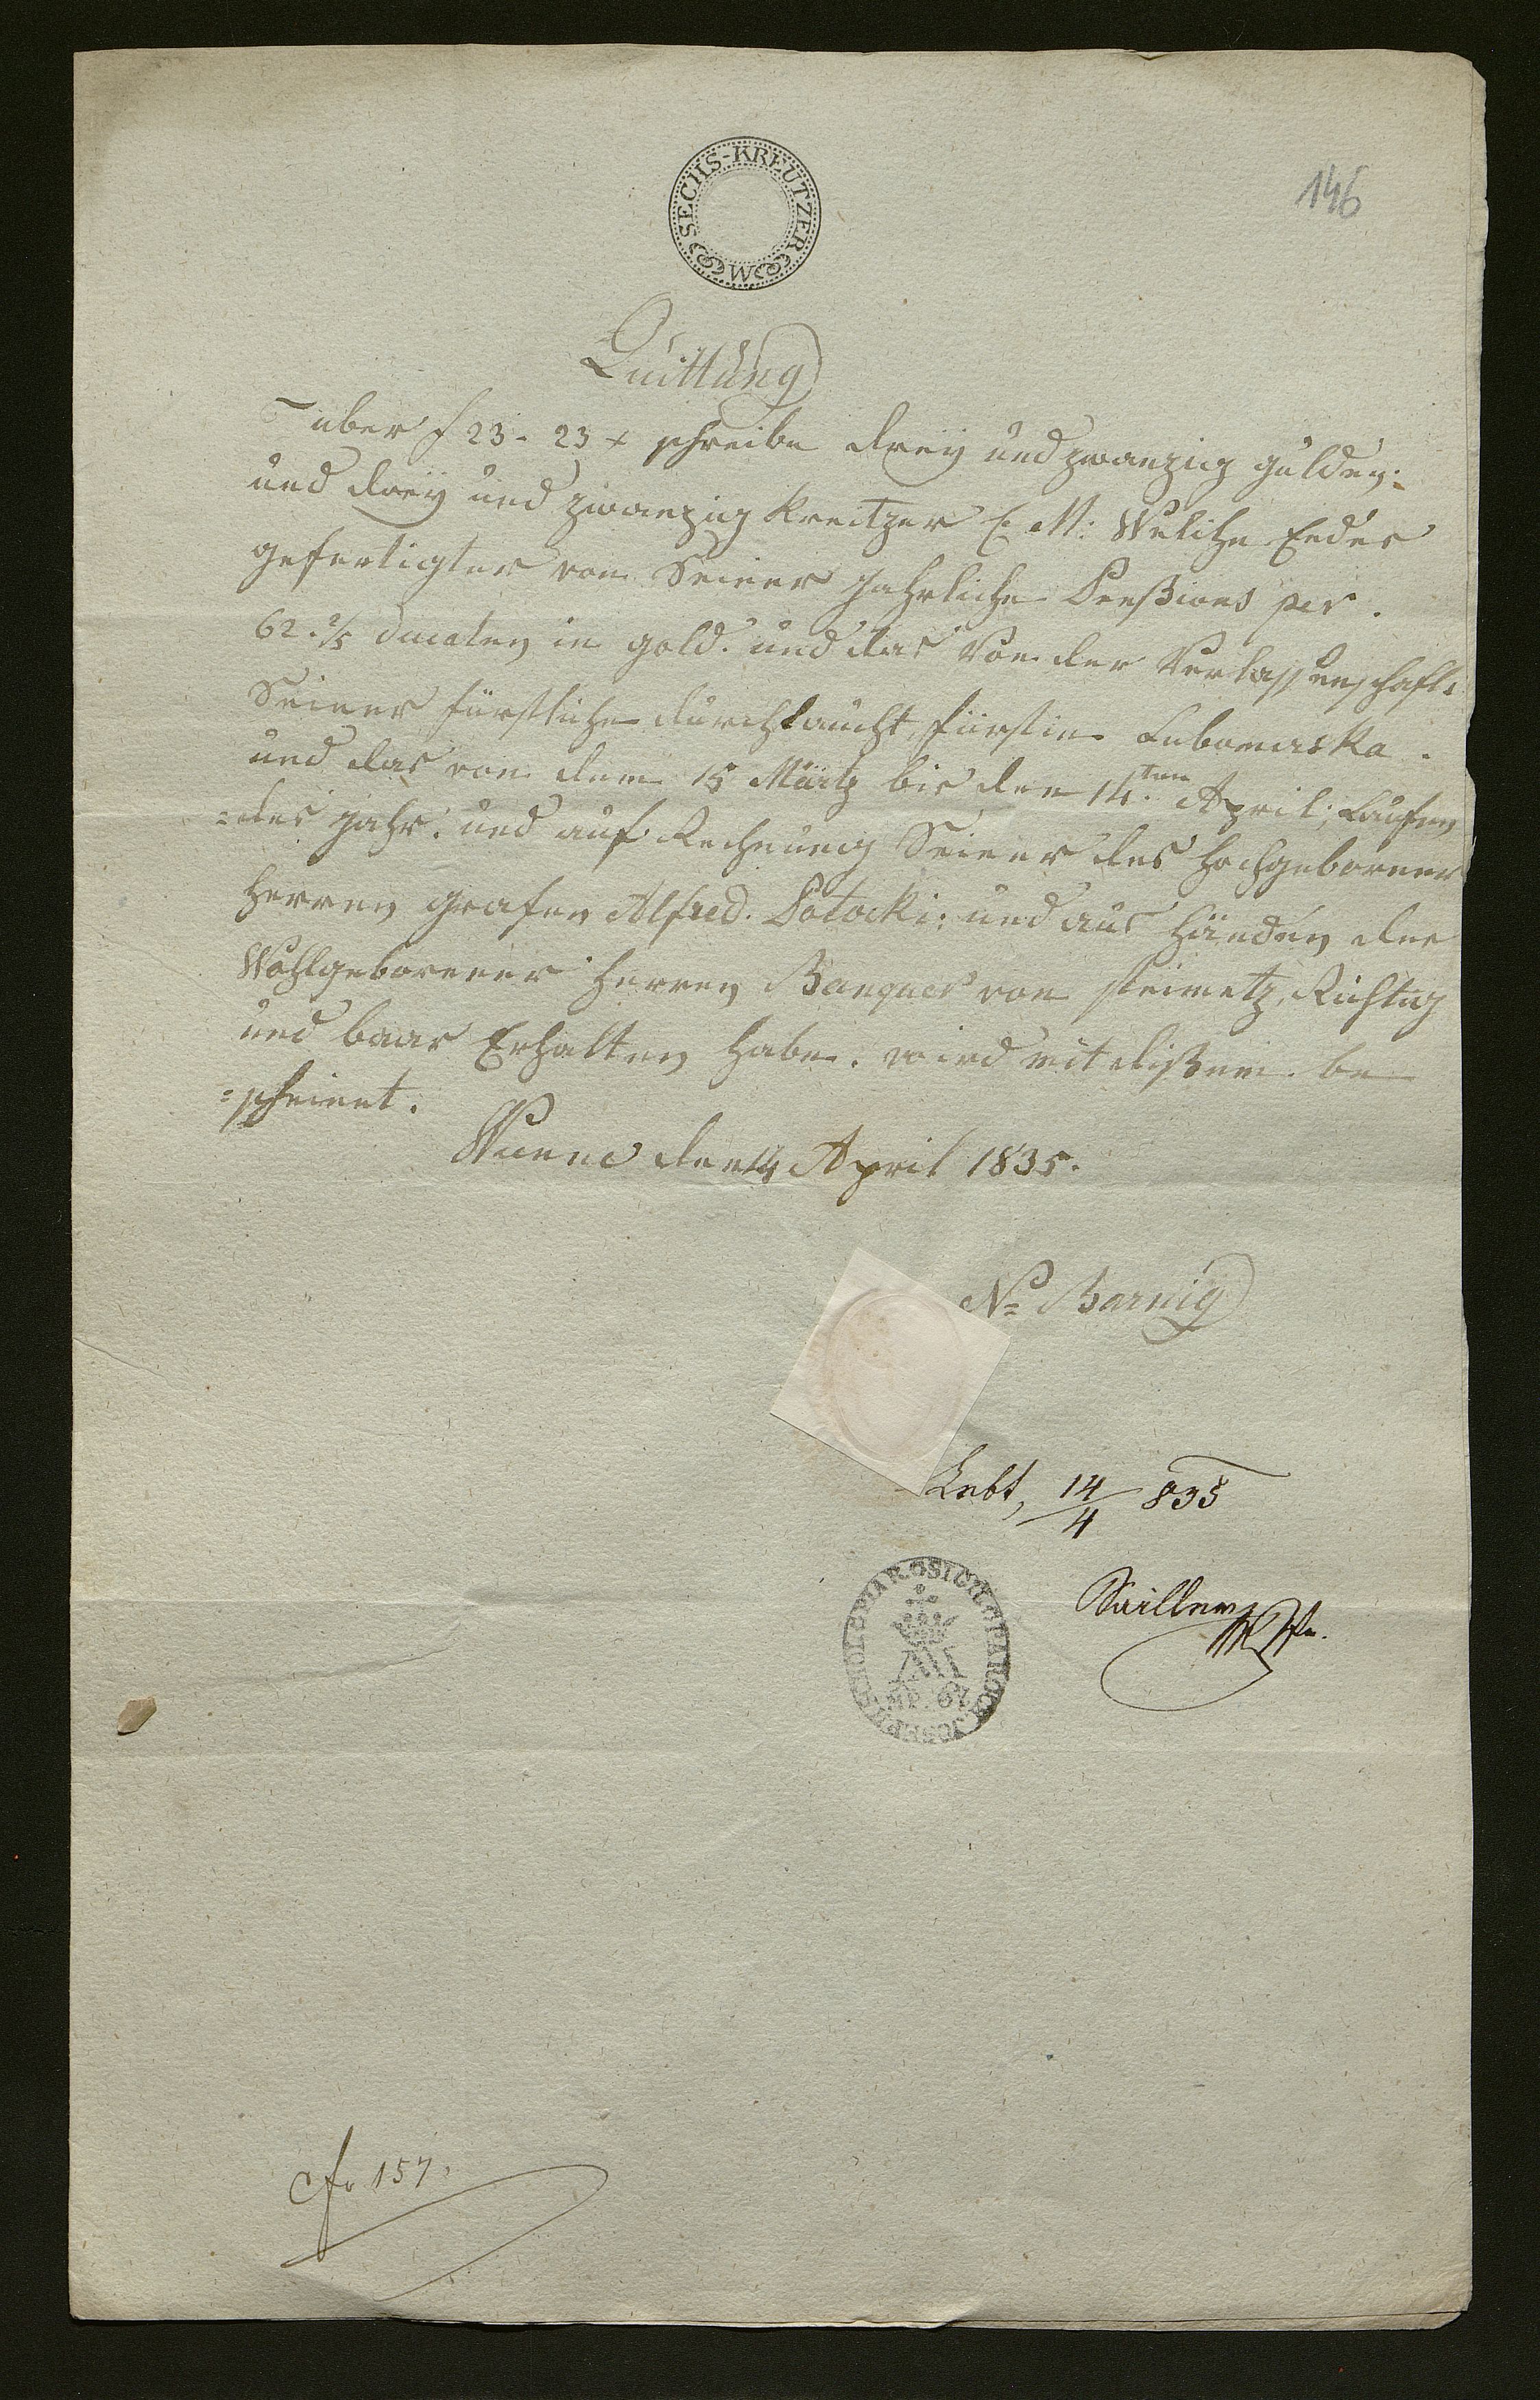 SECHS-KREUTZER
WM
146
Quittung
über f 23 - 23 x schreibe dreÿ und zwanzig gulden.
und dreÿ und zwanzig Kreitzer C: M: Welche Endes
gefertigter von Seiner Jahrliche Penßions per.
62. 2/5 Ducaten in gold. und das Von der Verlassenschaft:
Seiner fürstliche durchlaucht fürstin Lubomirska.
und das von dem 15 Märtz bis den 14ten April; Laufen
=des jahr: und auf Rechnung Seiner des Hochgeborner
Herren grafen Alfred. Potocki: und aus Händen des
Wohlgeborener Herren Banquer von Steimetz, Richtig
und baar Erhalten habe. wird mit dißem. be
=scheint.
Wienn den 14 April 1835.
Nō Barnig
Lebt, 14/4 835
Sailler
Cfr 157.